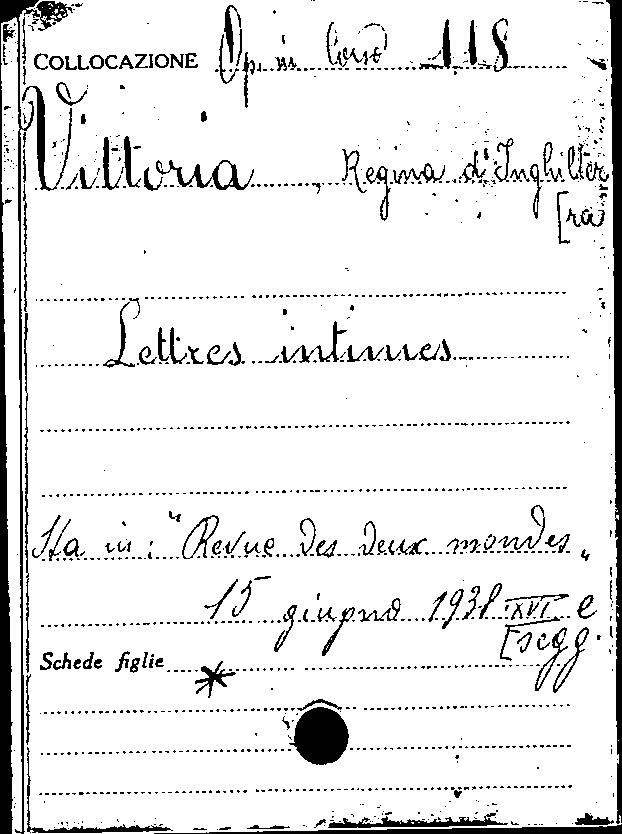 COLLOCAZIONE Op. in Corso 118
Vittoria, Regina d'Inghilter
[ra
Lettres intimes
Sta in: "Revue des deux mondes"
15 giugno 1938 XVI e
[segg.
Schede figlie
*